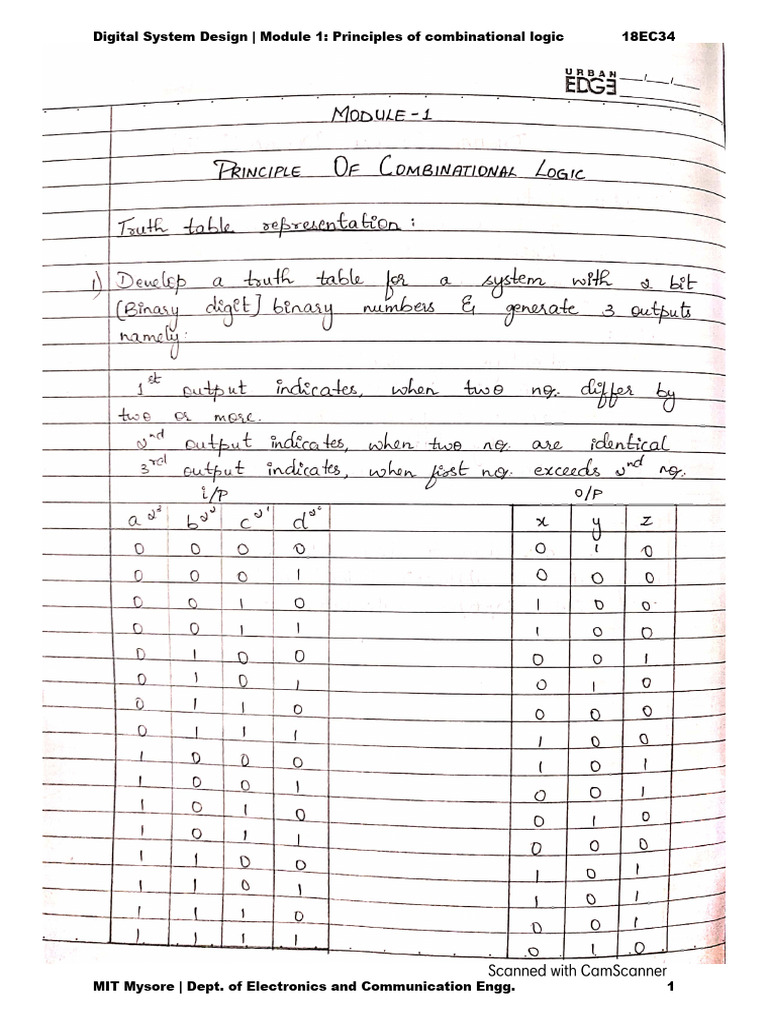 Digital System Design | Module 1: Principles of combinational logic 18EC34
URBAN
EDGE
MODULE-1
PRINCIPLE OF COMBINATIONAL LOGIC
Truth table representation :
1) Develop a truth table for a system with 2 bit
[Binary digit] binary numbers & generate 3 outputs
namely:
1st output indicates, when two no. differ by
two or more.
2nd output indicates, when two no. are identical
3rd output indicates, when first no. exceeds 2nd no.
i/p o/p
a 2³ b 2² c 2¹ d 2⁰ x y z
0 0 0 0 0 1 0
0 0 0 1 0 0 0
0 0 1 0 1 0 0
0 0 1 1 1 0 0
0 1 0 0 0 0 1
0 1 0 1 0 1 0
0 1 1 0 0 0 0
0 1 1 1 1 0 0
1 0 0 0 1 0 1
1 0 0 1 0 0 1
1 0 1 0 0 1 0
1 0 1 1 0 0 0
1 1 0 0 1 0 1
1 1 0 1 1 0 1
1 1 1 0 0 0 1
1 1 1 1 0 1 0
Scanned with CamScanner
MIT Mysore | Dept. of Electronics and Communication Engg. 1